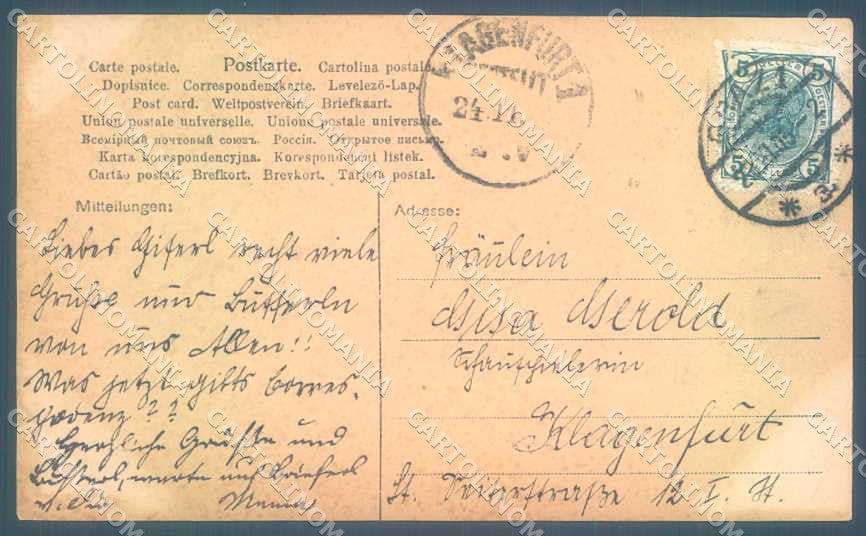 Carte postale. Postkarte. Cartolina postale.
Dopisnice. Correspondenzkarte. Levelező-Lap.
Post card. Weltpostverein. Briefkaart.
Union postale universelle. Unione postale universale.
Всемірный почтовый союзъ. Россія. Открытое письмо.
Karta korespondencyjna. Korespondenční listek.
Cartão postal. Brefkort. Brevkort. Tarjeta postal.
KLAGENFURT 1
24. VI
5 5
5 5
Mitteilungen:
Liebes Giferl recht viele
Grüße und Busserln
von uns Allen!!
Was jetzt gibts Corres-
podenz??
Herzliche Grüße und
Busserl, warte auf Brieferl
Mama
Adresse:
Fräulein
Misa Merold
Schauspielerin
Klagenfurt
St. Veiterstraße 12 I. St.
CARTOLINOMANIA